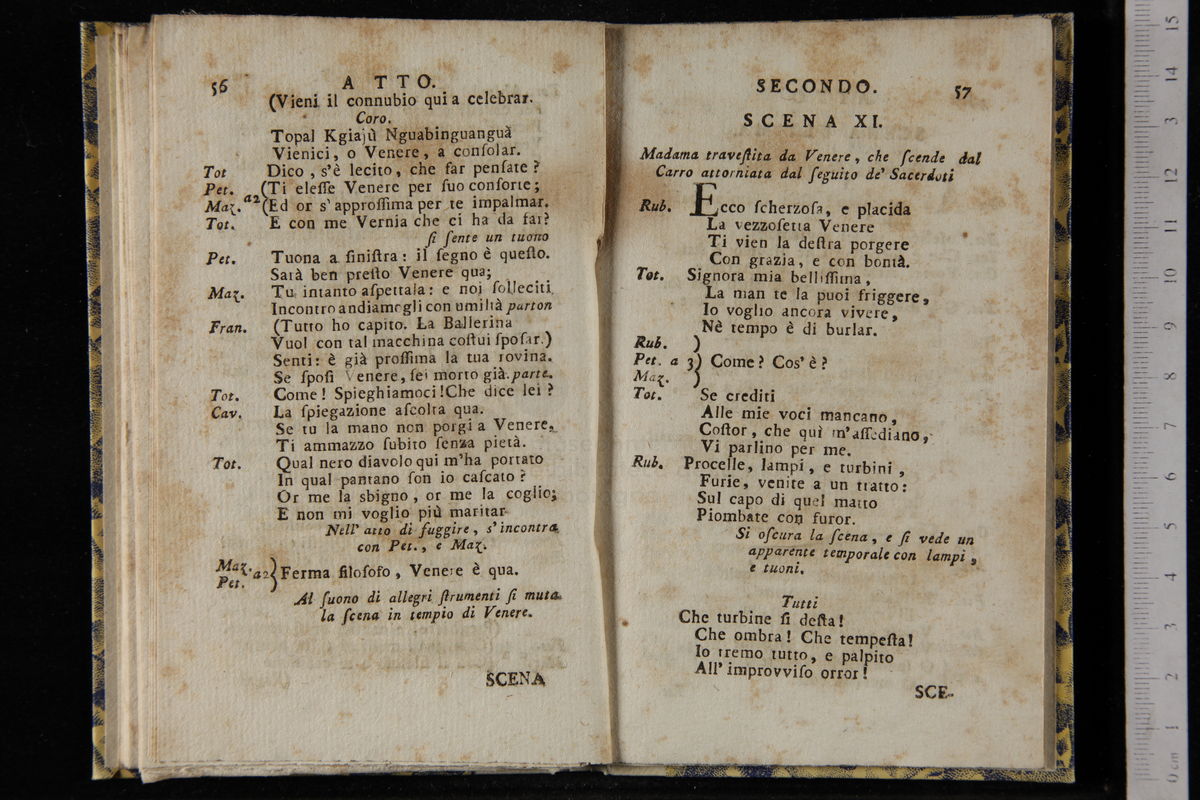 56 ATTO.
(Vieni il connubio qui a celebrar.
Coro.
Topal Kgiajù Nguabinguanguà
Vienici, o Venere, a conſolar.
Tot Dico, s'è lecito, che far penſate?
Pet. (Ti eleſſe Venere per ſuo conſorte;
Maz. a2 (Ed or s'approſſima per te impalmar.
Tot. E con me Vernia che ci ha da far?
ſi ſente un tuono
Pet. Tuona a ſiniſtra: il ſegno è queſto.
Sarà ben preſto Venere qua;
Maz. Tu intanto aſpettala: e noi ſolleciti
Incontro andiamogli con umiltà parton
Fran. (Tutto ho capito. La Ballerina
Vuol con tal macchina coſtui ſpoſar.)
Senti: è già proſſima la tua rovina.
Se ſpoſi Venere, ſei morto già. parte.
Tot. Come! Spieghiamoci! Che dice lei?
Cav. La ſpiegazione aſcolta qua.
Se tu la mano non porgi a Venere,
Ti ammazzo ſubito ſenza pietà.
Tot. Qual nero diavolo qui m'ha portato
In qual pantano ſon io caſcato?
Or me la sbigno, or me la coglio;
E non mi voglio più maritar
Nell' atto di fuggire, s'incontra
con Pet., e Maz.
Maz. Pet. a2) Ferma filoſofo, Venere è qua.
Al ſuono di allegri ſtrumenti ſi muta
la ſcena in tempio di Venere.
SCENA
SECONDO. 57
SCENA XI.
Madama traveſtita da Venere, che ſcende dal
Carro attorniata dal ſeguito de' Sacerdoti
Rub. Ecco ſcherzoſa, e placida
La vezzoſetta Venere
Ti vien la deſtra porgere
Con grazia, e con bontà.
Tot. Signora mia belliſſima,
La man te la puoi friggere,
Io voglio ancora vivere,
Nè tempo è di burlar.
Rub. )
Pet. a 3) Come? Cos'è?
Maz. )
Tot. Se crediti
Alle mie voci mancano,
Coſtor, che quì m'aſſediano,
Vi parlino per me.
Rub. Procelle, lampi, e turbini,
Furie, venite a un tratto:
Sul capo di quel matto
Piombate con furor.
Si oſcura la ſcena, e ſi vede un
apparente temporale con lampi,
e tuoni.
Tutti
Che turbine ſi deſta!
Che ombra! Che tempeſta!
Io tremo tutto, e palpito
All' improvviſo orror!
SCE-
15
14
13
12
11
10
9
8
7
6
5
4
3
2
1
0 cm